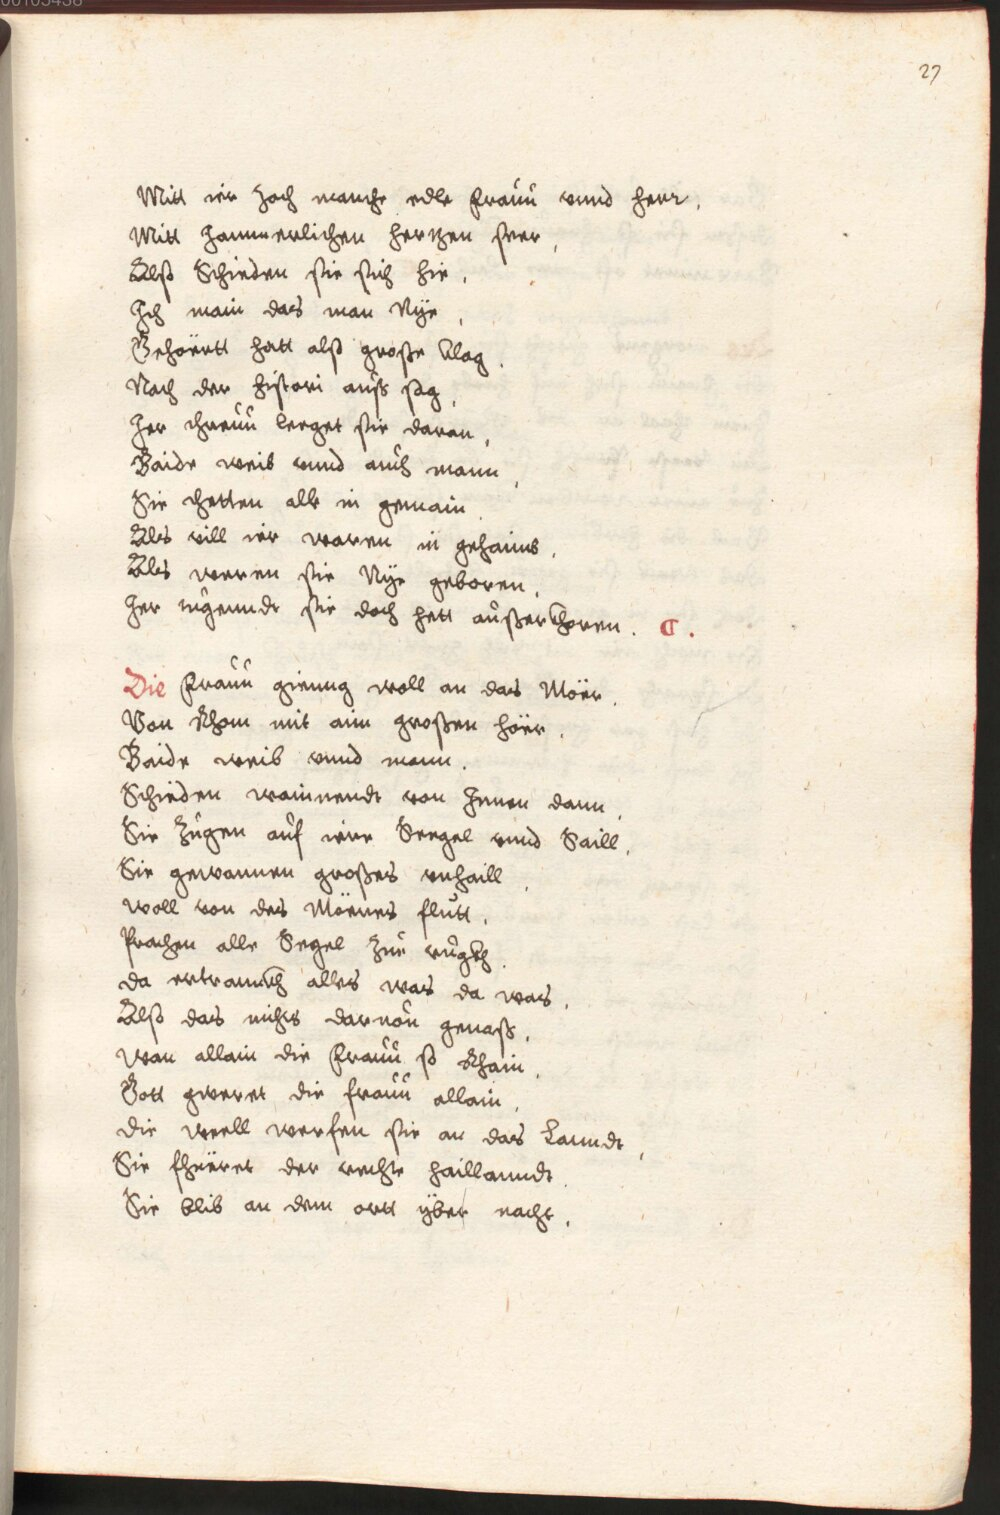 00105438
27
Mitt ier zoch manche edle Frauu vnnd herr,
Mitt Jammerlichen hertzen swer,
Alß Schieden sie sich hie,
Ich main das man Nÿe,
Gehöertt hatt alß große klag.
Nach der histori auß sag,
Jer threuu leeget sie daran,
Baide weib vnnd auch mann,
Sie thetten alle in gemain
Als vill ier waren in gehaims,
Als weren sie Nÿe geboren,
Jer tugenndt sie doch hett außerkhoren. C.
Die Frauu gienng woll an das Möer.
Von Rhom mit aim großen höer.
Baide weib vnnd mann.
Schieden wainnendt von Jnnen dann,
Sie Zugen auf iere Seegel vnnd Saill,
Sie gewannen großes vnhaill,
woll von des Möeres flutt,
Prachen alle Segel Zue rugkh.
da ertrannckh alles was da was,
Alß das nichts daruon genaß,
wan allain die Frauu so Rhain,
Gott gweret die frauu allain,
die well werfen sie an das Lanndt,
Sie fhüeret der rechte haillanndt.
Sie blib an dem ortt ÿber nacht,